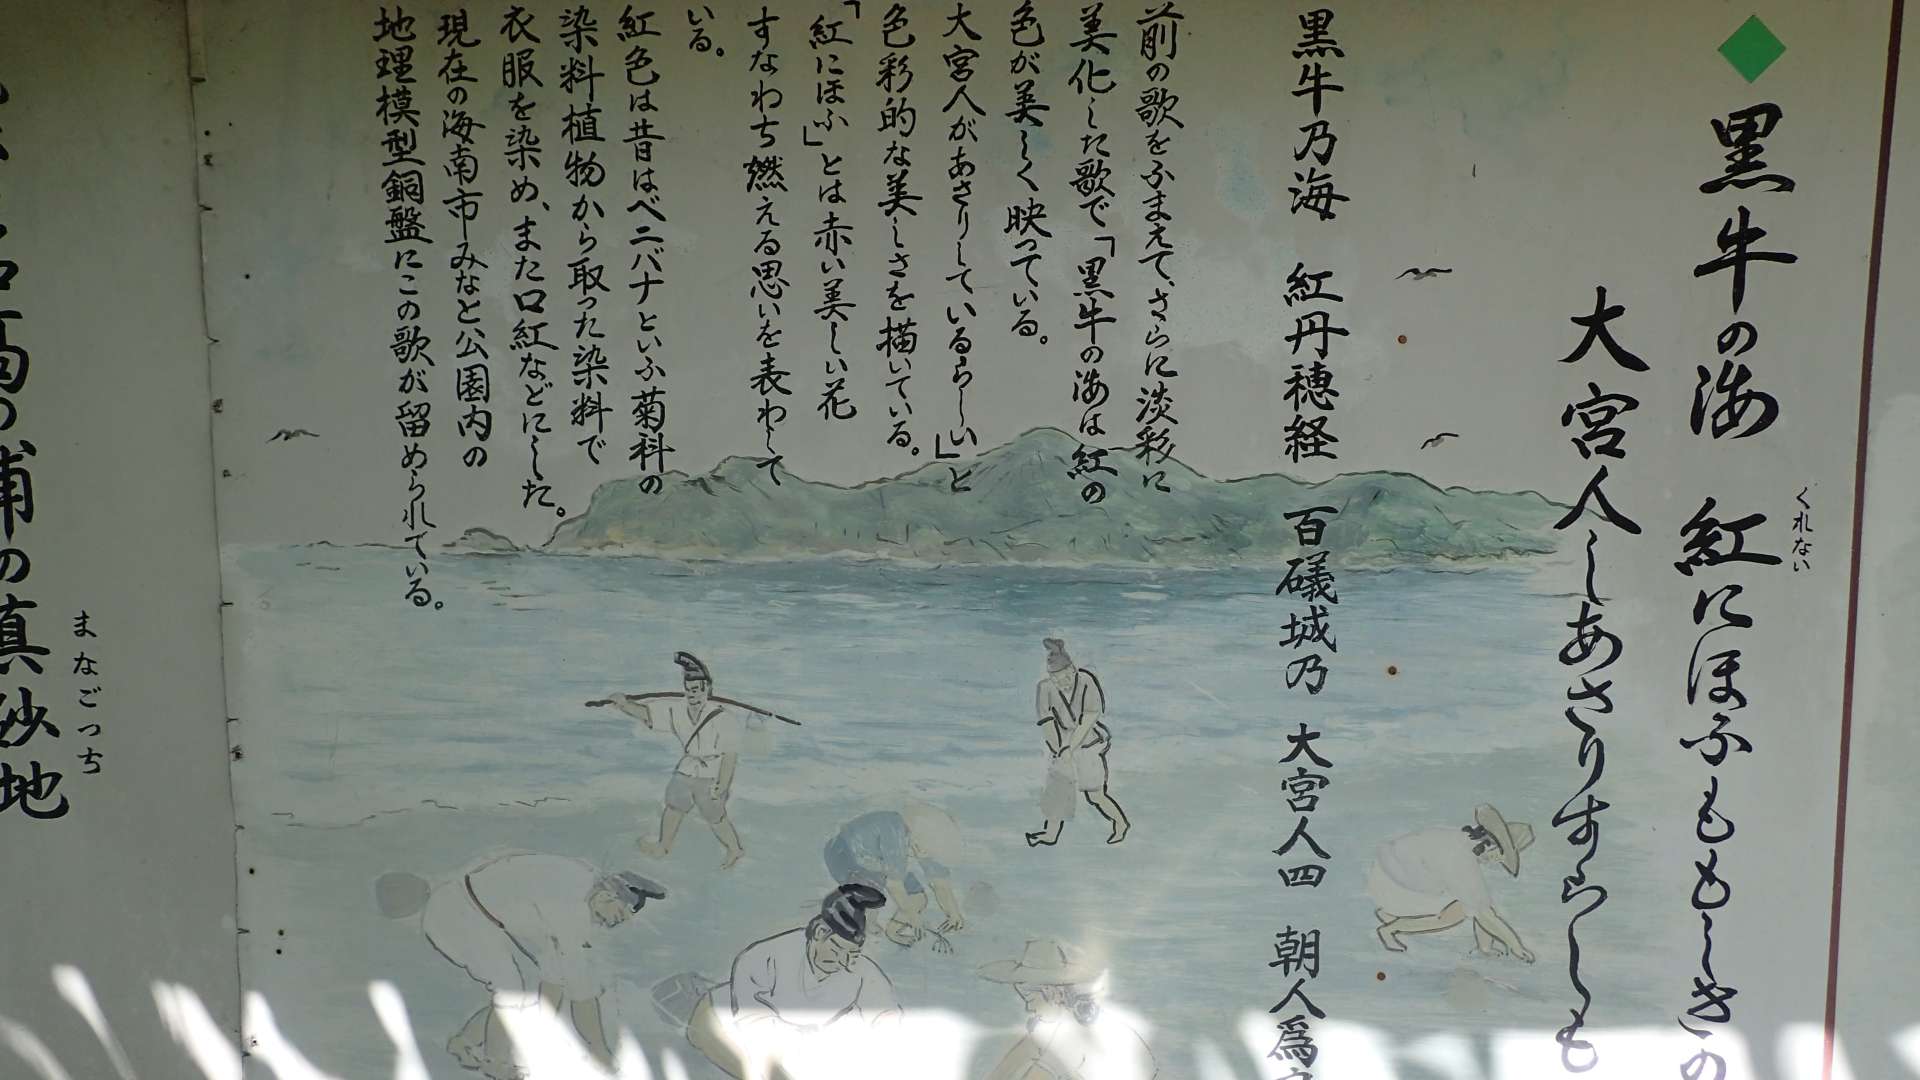 黒牛の海 紅にほふももしきの
くれない
大宮人しあさりすらしも
黒牛乃海 紅丹穂経 百礒城乃 大宮人四 朝入為
前の歌をふまえて、さらに淡彩に
美化した歌で「黒牛の海は紅の
色が美しく映っている。
大宮人があさりしているらしい」と
色彩的な美しさを描いている。
「紅にほふ」とは赤い美しい花
すなわち燃える思いを表わして
いる。
紅色は昔はベニバナといふ菊科の
染料植物から取った染料で
衣服を染め、また口紅などにした。
現在の海南市みなと公園内の
地理模型銅盤にこの歌が留められている。
高の浦の真砂地
まなごつち